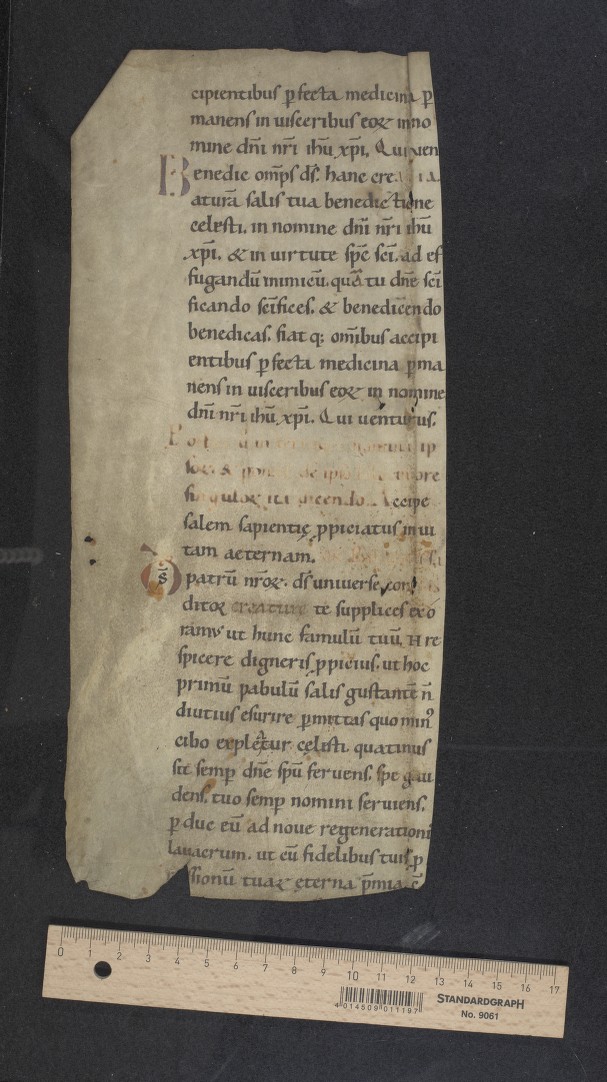 cipientibus ꝑfecta medicina ꝑ
manens in uisceribus eoꝝ in no
mine dn̄i nr̄i ih̄u xp̄i. Qui uen
Benedic om̄ps d̄s. hanc crea
aturā salis tua benedictione
celesti. in nomine dn̄i nr̄i ih̄u
xp̄i. & in uirtute sp̄c sc̄i. ad ef
fugandū inimicū. quā tu dn̄e sc̄i
ficando sc̄ifices. & benedicendo
benedicas. fiat q; om̄ibus accipi
entibus ꝑfecta medicina ꝑma
nens in uisceribus eoꝝ in nomine
dn̄i nr̄i ih̄u xp̄i. Qui uenturus.
ip
soꝝ. & ore
singuloꝝ ita dicendo. Accipe
salem sapientię ꝓpiciatus in ui
tam aeternam.
Ds̄ patrū nr̄oꝝ. ds̄ uniuerse con
ditor creature te supplices exo
ramus ut hunc famulū tuū. N re
spicere digneris ꝓpicius. ut hoc
primū pabulū salis gustantē n̄
diutius esurire ꝑmittas quo min᾽
cibo expleatur cęlesti. quatinus
sit semꝑ dn̄e sp̄u feruens. spe gau
dens. tuo semꝑ nomini seruiens.
ꝑduc eū ad noue regenerationi
lauacrum. ut eū fidelibus tuis ꝓ
missionū tuaꝝ ęterna p̄mia c̄